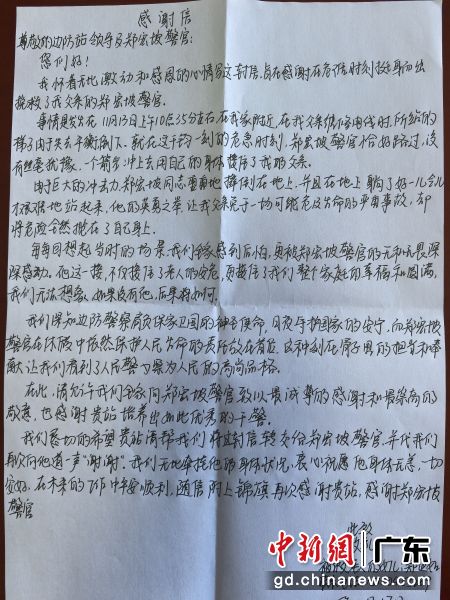 感谢信
尊敬的边防站领导及郑宏坡警官:
您们好!
我怀着无比激动和感恩的心情写这封信,旨在感谢在危急时刻挺身而出
拯救了我父亲的郑宏坡警官。
事情是发生在11月13日上午10点35分左右在我家附近,在我父亲
梯子由于失去平衡倒下。就在这千钧一刻的危急时刻,郑宏坡警官恰好路过,没
有丝毫犹豫,一个箭步冲上去用自己的身体接住了我的父亲。
由于巨大的冲击力,郑宏坡同志重重地摔倒在地上,并且在地上躺了好一会儿
才艰难地站起来,他的英勇之举,让我父亲免于一场可能危及生命的严重事故,却
将危险全然揽在了自己身上。
每每回想起当时的场景,我们全家感到后怕,更被郑宏坡警官的无私无畏深
深感动。他这一接,不仅接住了老人的安危,更接住了我们整个家庭的幸福和圆满,
我们无法想象,如果没有他,后果将如何。
我们深知边防警察肩负保家卫国的神圣使命,日夜守护国家的安宁,而郑宏坡
警官在休假中依然保护人民生命的责任放在首位。这种刻在骨子里的担当和奉
献,让我们看到了人民警察为人民的高尚品格。
在此,请允许我们全家向郑宏坡警官致以最诚挚的感谢和最崇高的
敬意,也感谢贵站培养出如此优秀的干警。
我们恳切的希望贵站请帮我们将这封信转交给郑宏坡警官,并代我们
再次向他道一声"谢谢"。我们无比牵挂他的身体状况,衷心祝愿他身体无恙,一切
安好。在未来的工作中平安顺利,随信附上锦旗再次感谢贵站,感谢郑宏坡
警官
中新网 广东
gd.chinanews.com